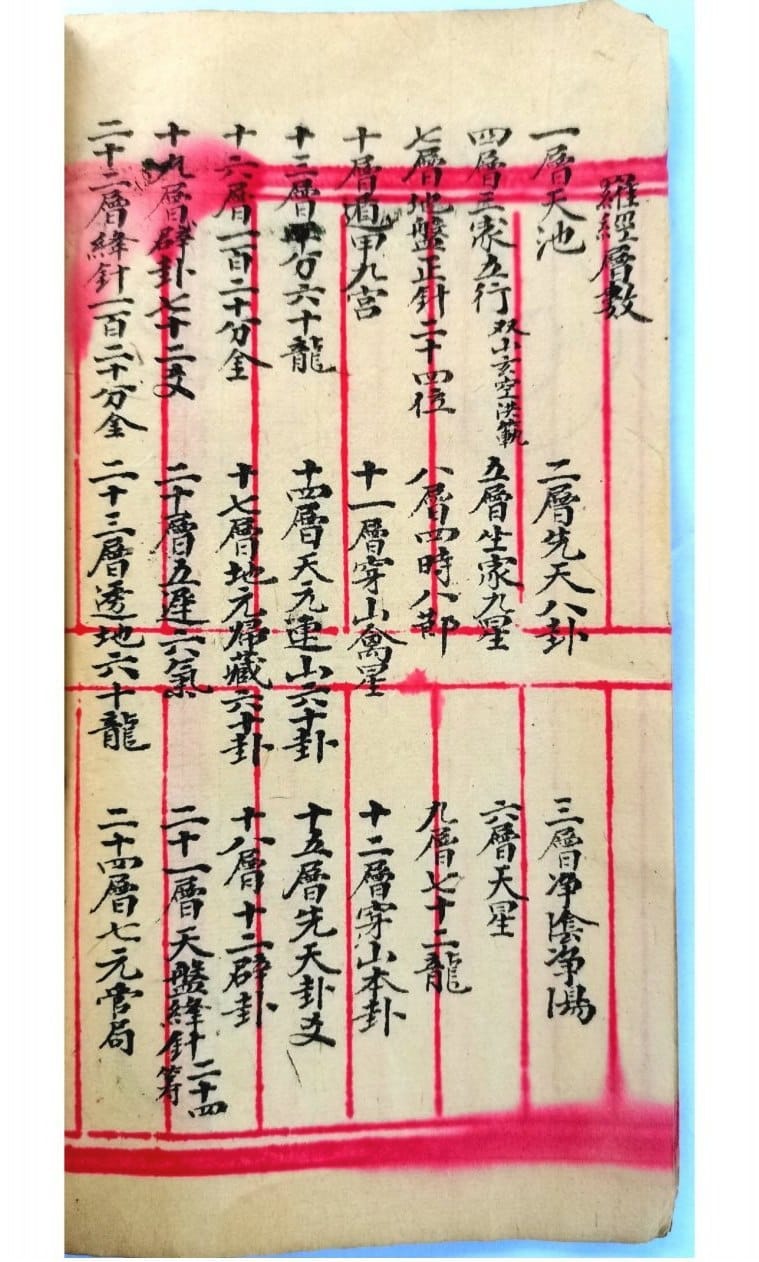 羅經層数
一層天池 二層先天八卦 三層净隂净湯
四層五家五行 双山玄空洪範 五層坐家九星 六層天星
七層地盤正針二十四位 八層四時八節 九層七十二龍
十層遁甲九宮 十一層穿山禽星 十二層穿山本卦
十三層平分六十龍 十四層天元連山六十卦 十五層先天卦爻
十六層一百二十分金 十七層地元帰藏六十卦 十八層十二辟卦
十九層辟卦七十二爻 二十層五運六氣 二十一層天盤縫針二十四
二十二層縫針一百二十分金 二十三層透地六十龍 二十四層七元管局